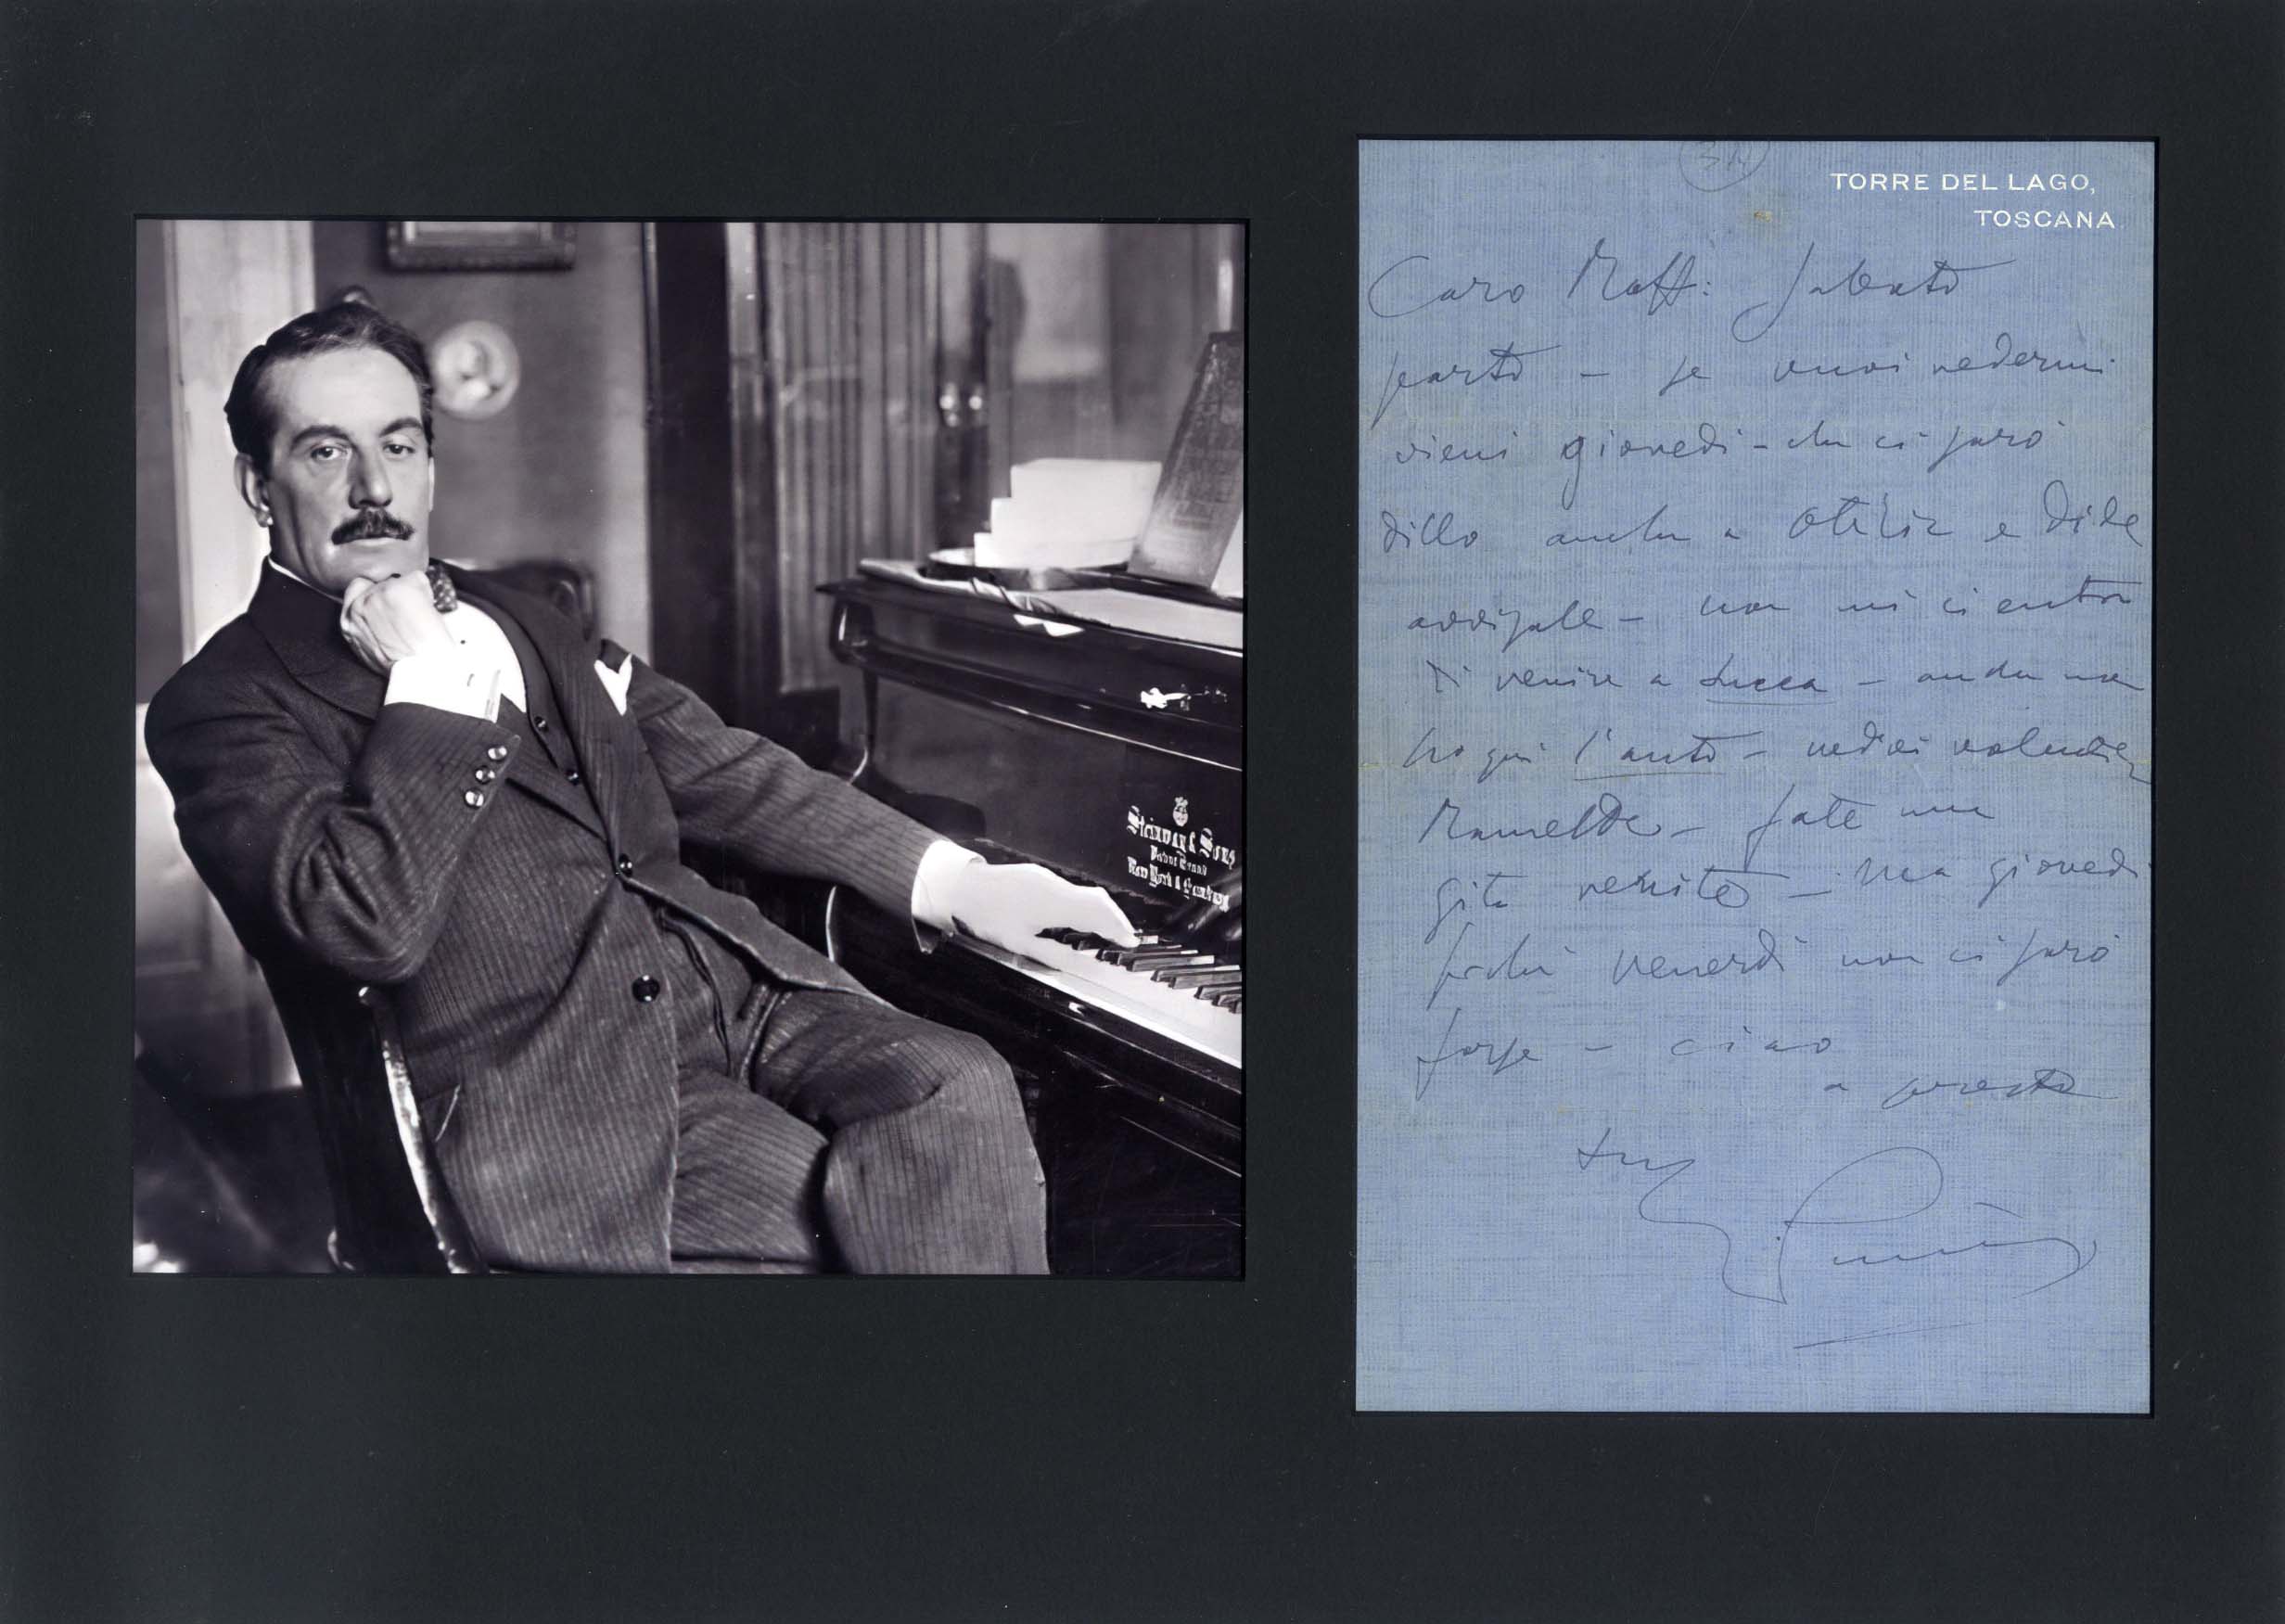 Steinway & Sons
New York &
34
TORRE DEL LAGO,
TOSCANA
Caro Raff: Sabato
parto – se vuoi vedermi
vieni giovedì – che ci sarò
dillo anche a Otilia e dile
non mi ci entra
di venire a Lucca – anche non
ho qui l'auto – vedrei volentier
Ramelde – fate una
gita venite – ma giovedì
perchè venerdì non ci sarò
forse – ciao
a presto
tuo
Puccini